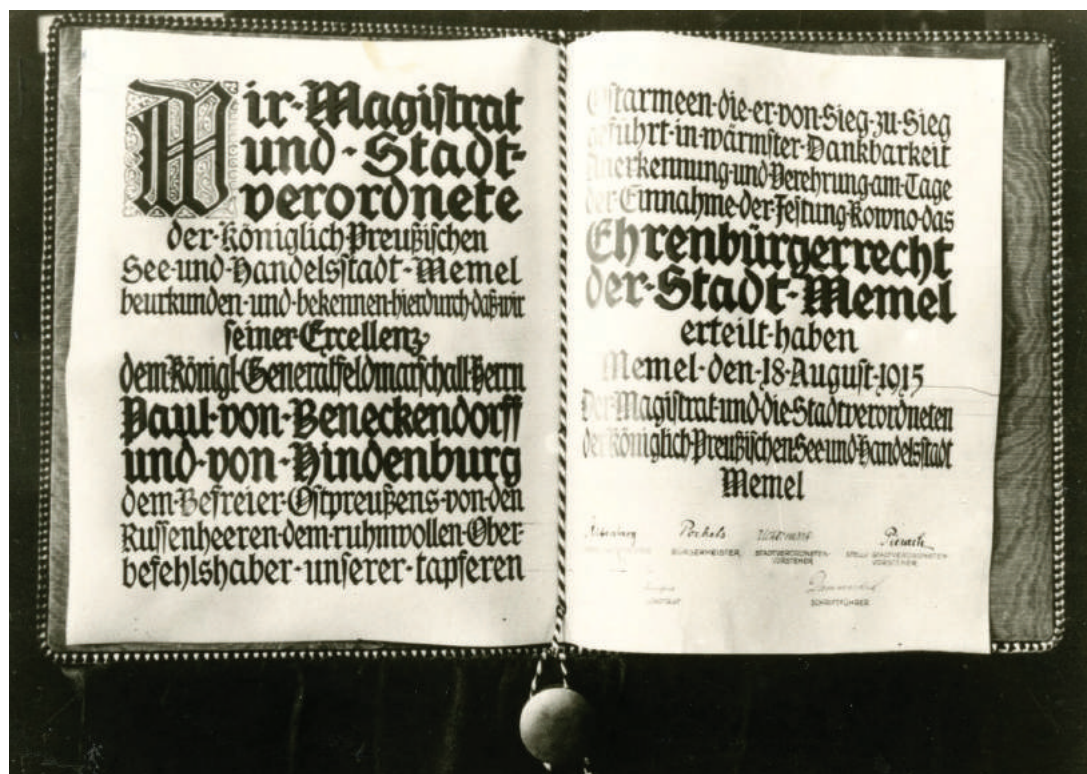 Wir·Magistrat
und·Stadt-
verordnete
der·Königlich·Preußischen
See·und·Handelsstadt·Memel
beurkunden·und·bekennen·hierdurch·daß·wir
seiner·Excellenz·
dem·Königl·Generalfeldmarschall·Herrn
Paul·von·Beneckendorff
und·von·Hindenburg
dem·Befreier·Ostpreußens·von·den
Russenheeren·dem·ruhmvollen·Ober-
befehlshaber·unserer·tapferen
Ostarmeen·die·er·von·Sieg·zu·Sieg
geführt·in·wärmster·Dankbarkeit
Anerkennung·und·Verehrung·am·Tage
der·Einnahme·der·Festung·Kowno·das
Ehrenbürgerrecht
der·Stadt·Memel
erteilt·haben
Memel·den·18·August·1915
Der·Magistrat·und·die·Stadtverordneten
der·Königlich·Preußischen·See·und·Handelsstadt
Memel
Pockels
BÜRGERMEISTER STADTVERORDNETEN- STELLV STADTVERORDNETEN-
VORSTEHER VORSTEHER
STADTRAT SCHRIFTFÜHRER